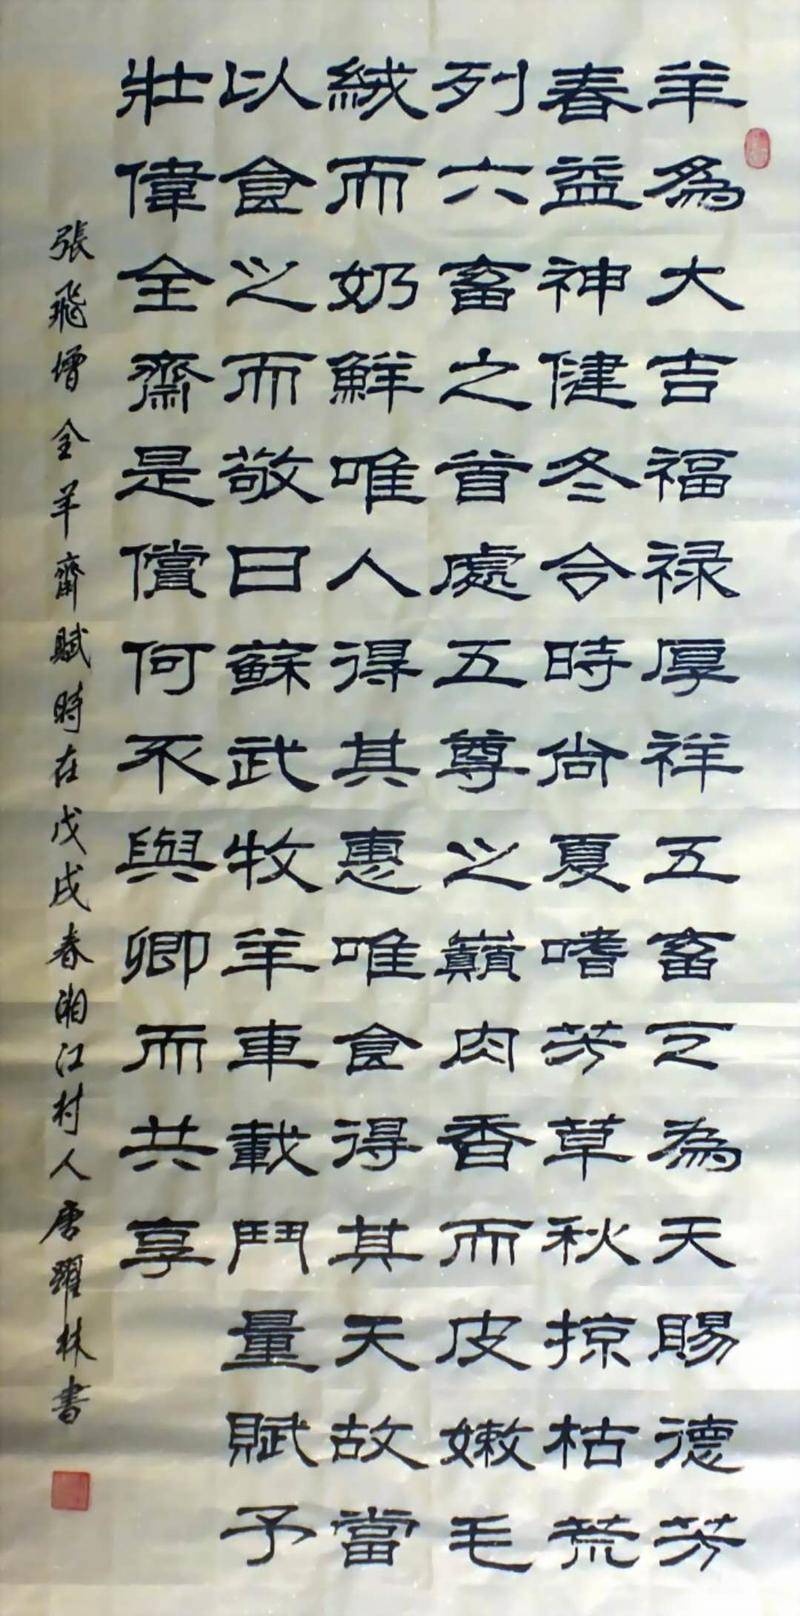 羊為大吉福禄厚祥五畜為天賜德芳
春益神健冬合時尚夏嗜芳草秋掠枯荒
列六畜之首處五尊之巔肉香而皮嫩毛
絨而奶鮮唯人得其惠唯食得其天故當
以食之而敬曰蘇武牧羊車載鬥量賦予
壯偉全齋是償何不與卿而共享
張飛增全羊齋賦時在戊戌春湘江村人唐躍林書